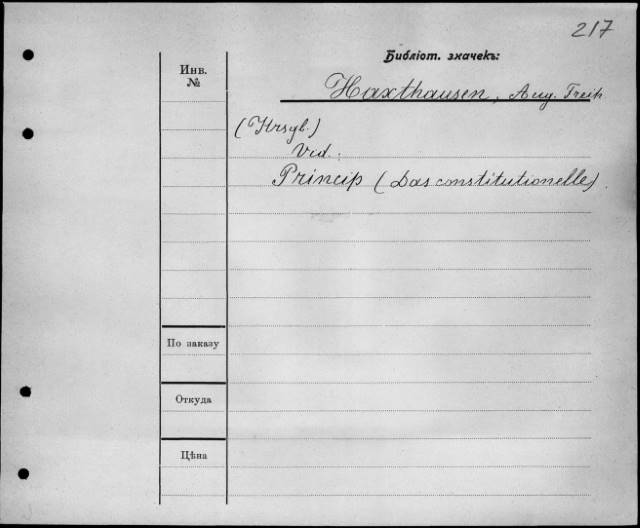 217
Библіот. значекъ:
Инв.
№
Haxthausen, Aug. Freih.
(Hrsgb.)
Vid.:
Princip (Das constitutionelle).
По заказу
Откуда
Цѣна